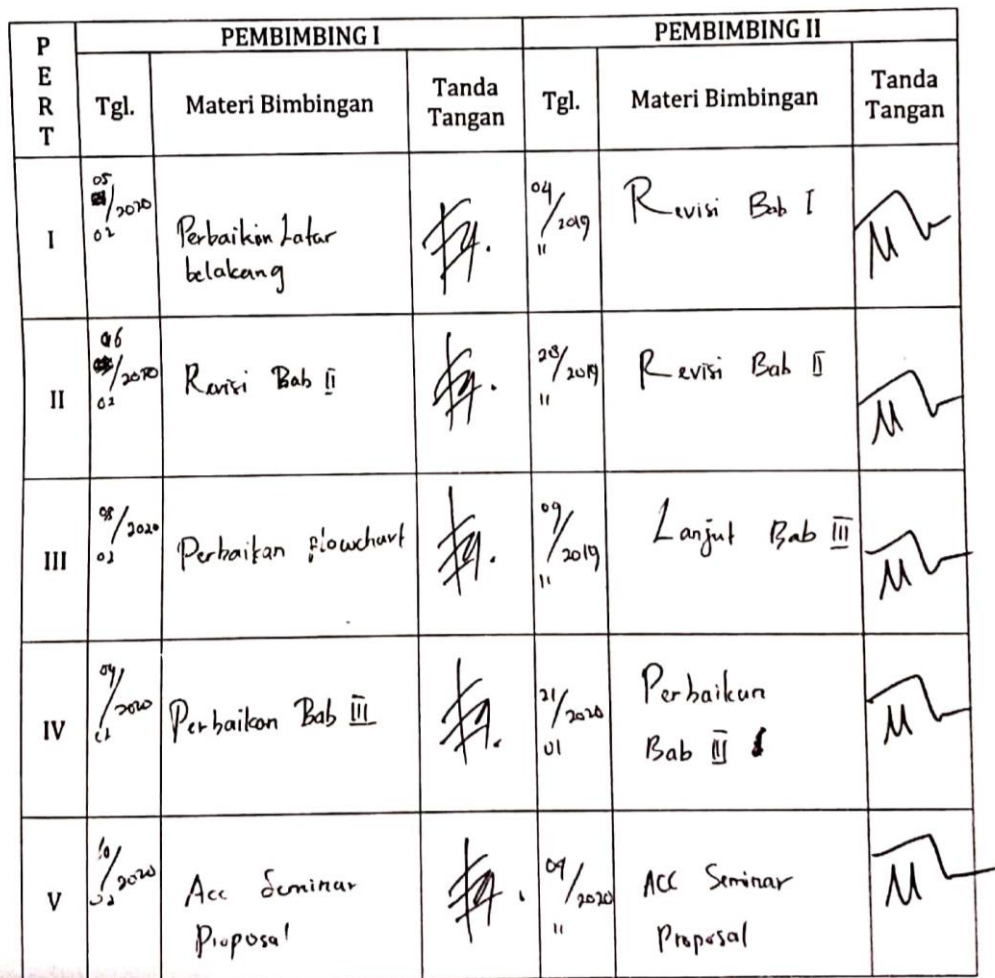 PERT
PEMBIMBING I
PEMBIMBING II
Tgl.
Materi Bimbingan
Tanda
Tangan
Tgl.
Materi Bimbingan
Tanda
Tangan
I
05/2020
02
Perbaikan Latar
belakang
04/2019
11
Revisi Bab I
II
06/2020
02
Revisi Bab II
28/2019
11
Revisi Bab II
III
08/2020
02
Perbaikan flowchart
09/2019
11
Lanjut Bab III
IV
/2020
Perbaikan Bab III
21/2020
01
Perbaikan
Bab II
V
10/2020
02
Acc Seminar
Proposal
/2020
11
ACC Seminar
Proposal